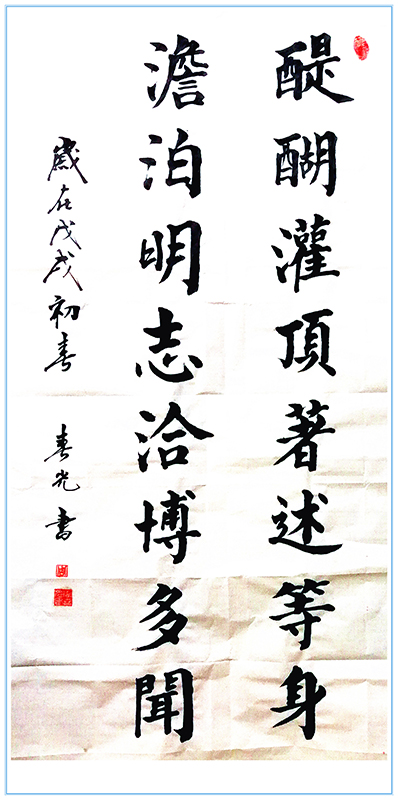 醍醐灌頂著述等身
澹泊明志洽博多聞
歲在戊戌初春 春光書